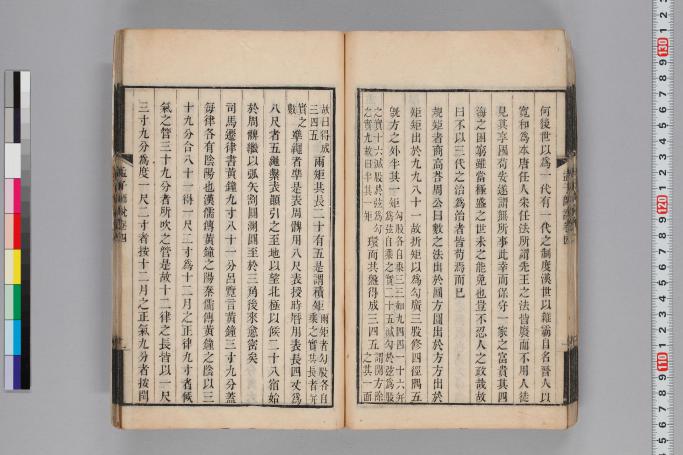 何後世以爲一代有一代之制度漢世以雜霸自名晉人以
寬和爲本唐任人宋任法所謂先王之法皆廢而不用人徒
見其享國苟安遂謂無所事此幸而保守一家之富貴其四
海之困窮雖當極盛之世未之能免也豈不忍人之政哉故
曰不以三代之治爲治者皆苟焉而已
規矩者商高荅周公曰數之法出於圓方圓出於方方出於
矩矩出於九九八十一故折矩以爲勾廣三股修四徑隅五
既方之外半其一矩勾股各自乘三三如九四四一十六
環而共盤得成三四五
故曰得成三四五
兩矩共長二十有五是謂積矩
準繩者準是表周髀用八尺表授時曆用表長四丈爲
八尺者五繩繫表顚引之至地以望北極以候二十八宿始
於周髀繼以弧矢割圓測圓至於三角後來愈密矣
司馬遷律書黃鐘九寸八十一分呂覽言黃鐘三寸九分蓋
每律各有陰陽也漢儒傳黃鐘之陽
黃鐘之陰以三
十九分合八十一得一尺二寸爲十二月之正律九寸者候
氣之管三寸九分者所吹之管是故十二律之長皆以一尺
三寸九分爲度一尺二寸者按十二月之正氣九分者按閏